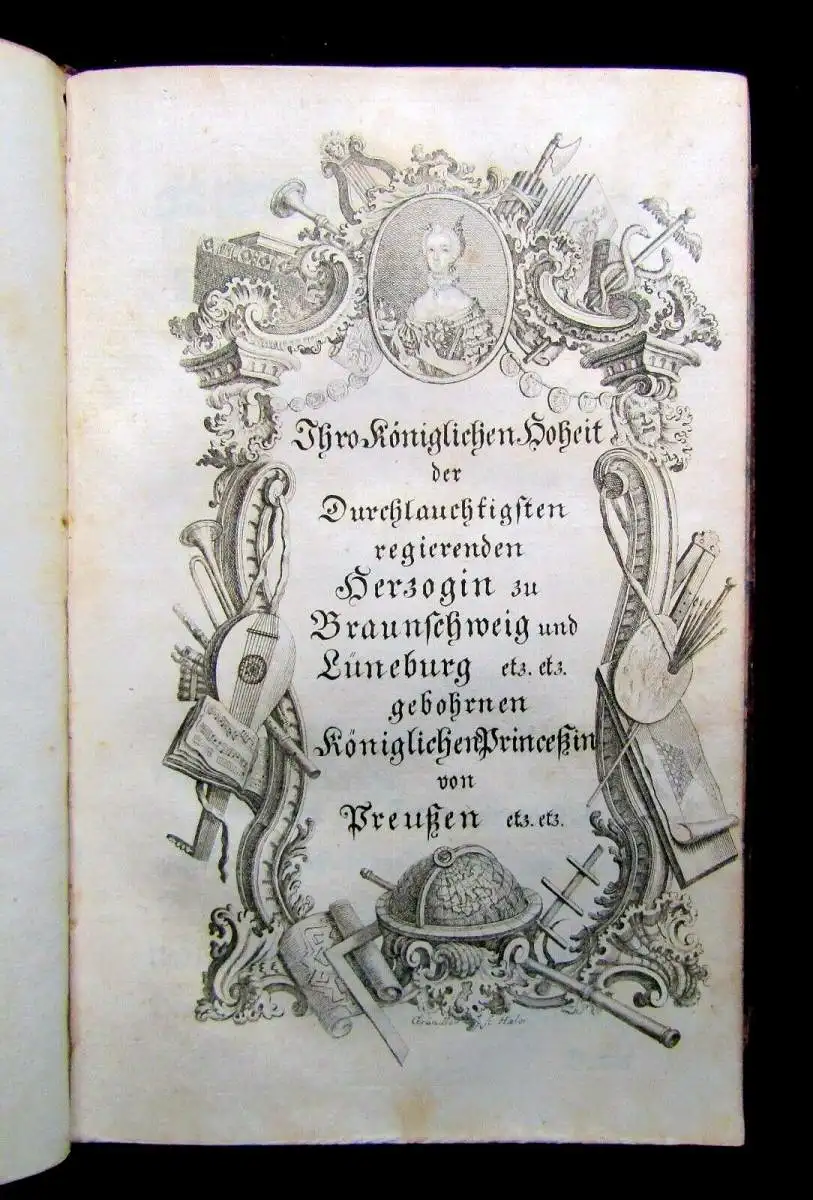 Ihro Königlichen Hoheit
der
Durchlauchtigsten
regierenden
Herzogin zu
Braunschweig und
Lüneburg etz. etz.
gebohrnen
Königlichen Princeßin
von
Preußen etz. etz.